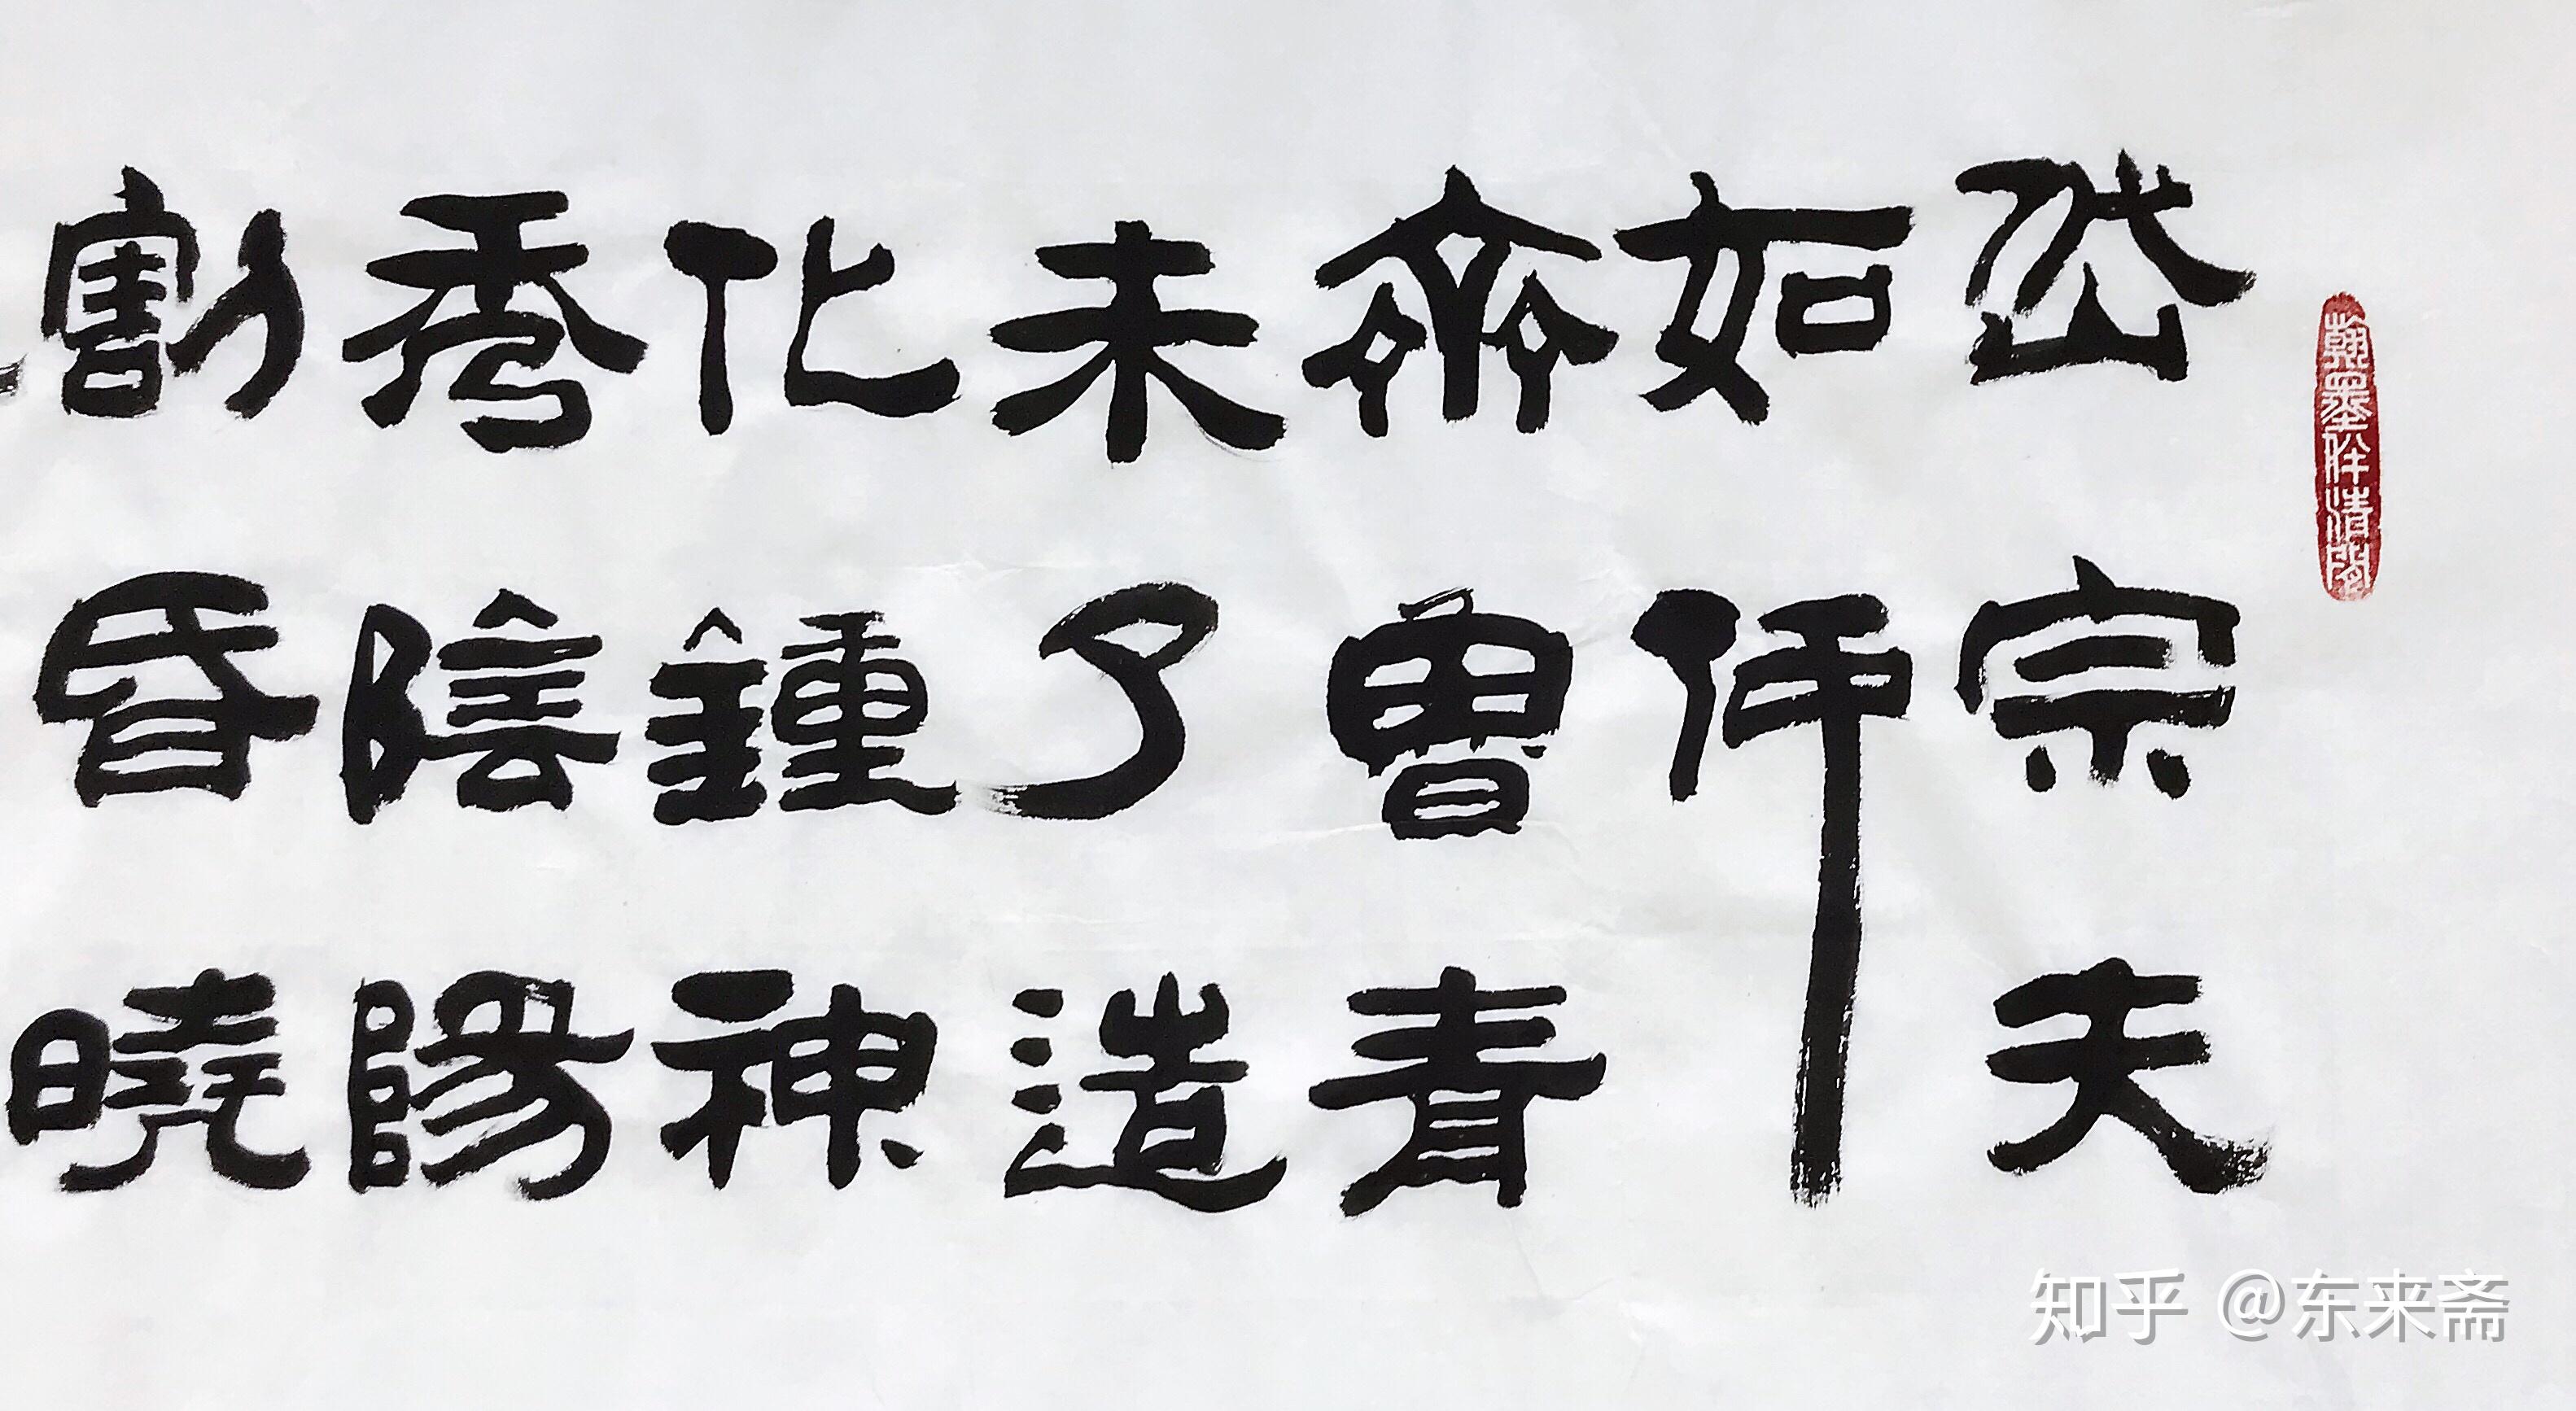 岱宗夫
如何
齊魯青
未了造
化鍾神
秀陰陽
割昏曉
知乎 @东来斋